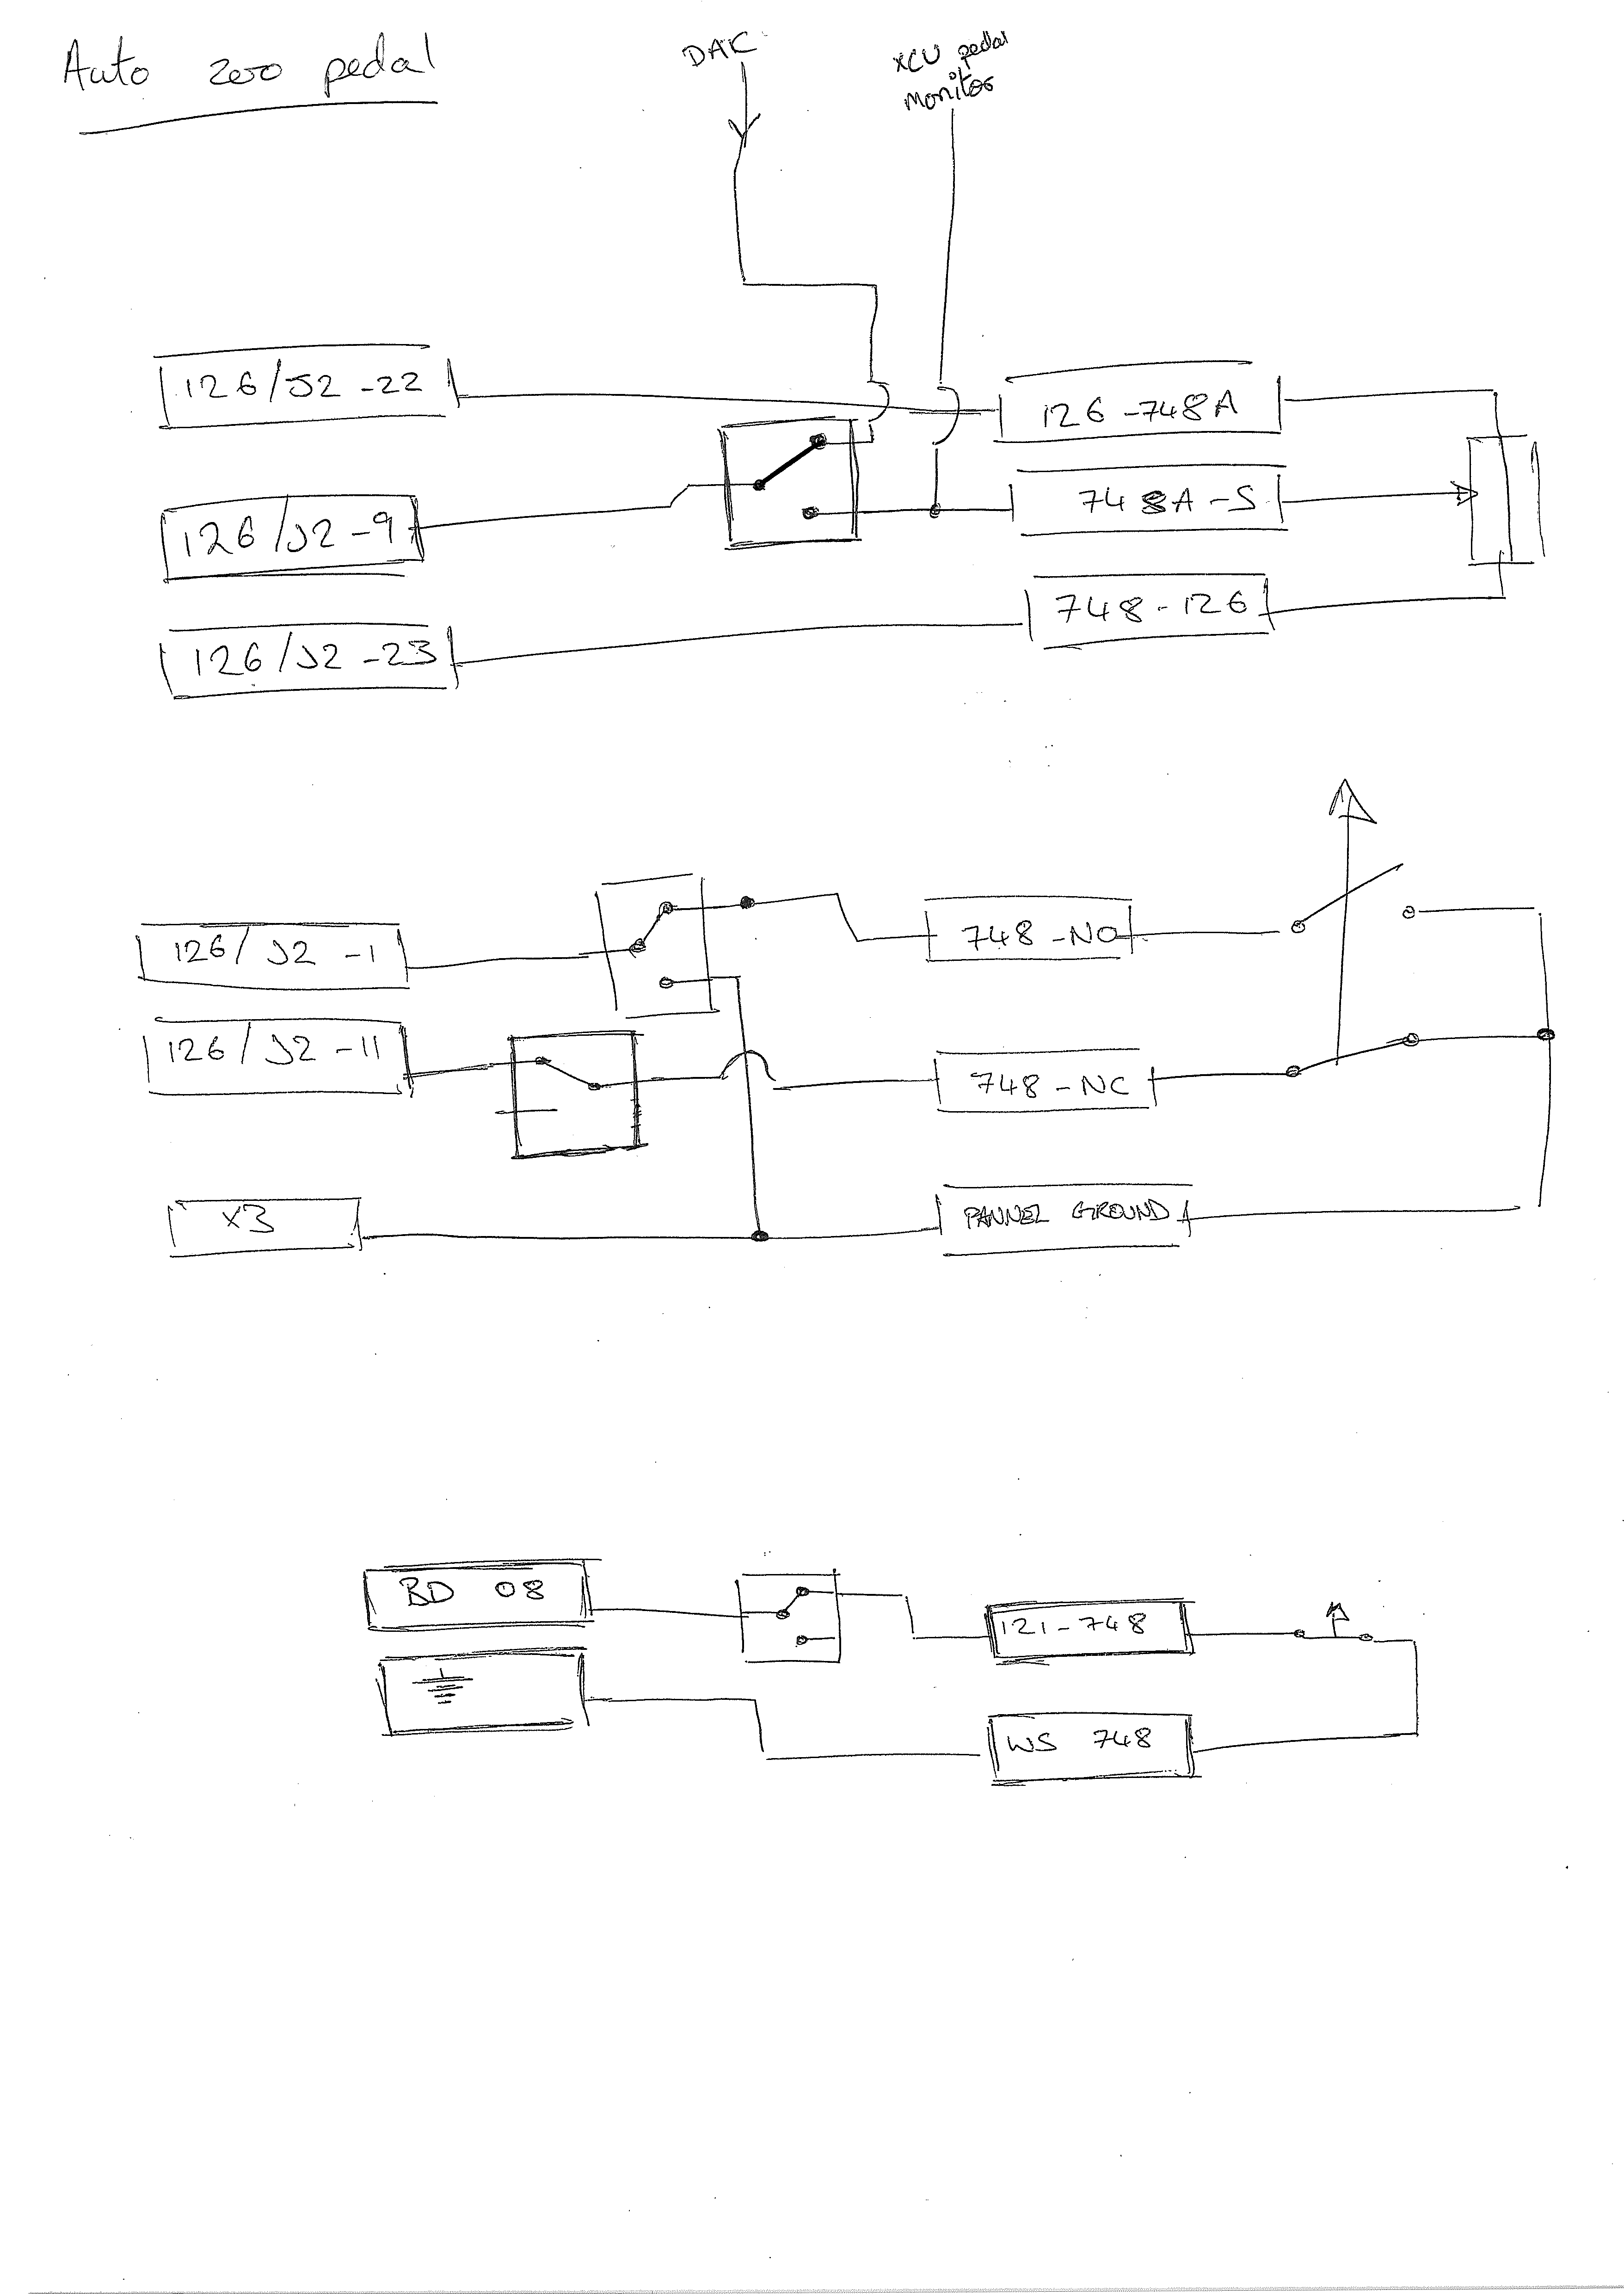 Auto zero pedal
DAC
XCU pedal
monitor
126/J2-22
126-748A
126/J2-9
748A-S
126/J2-23
748-126
126/J2-1
748-NO
126/J2-11
748-NC
X3
PANNEL GROUND
BD 08
121-748
WS 748